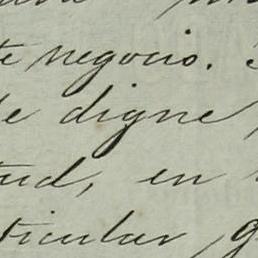 te negocio.
de digne
tud, en
ticular, g